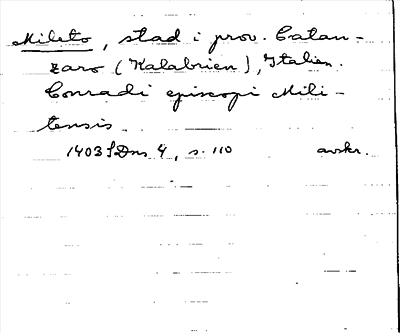 Mileto, stad i prov. Catan-
zaro (Kalabrien), Italien.
Conradi episcopi Mili-
tensis
1403 SDns 4, s. 110 avskr.